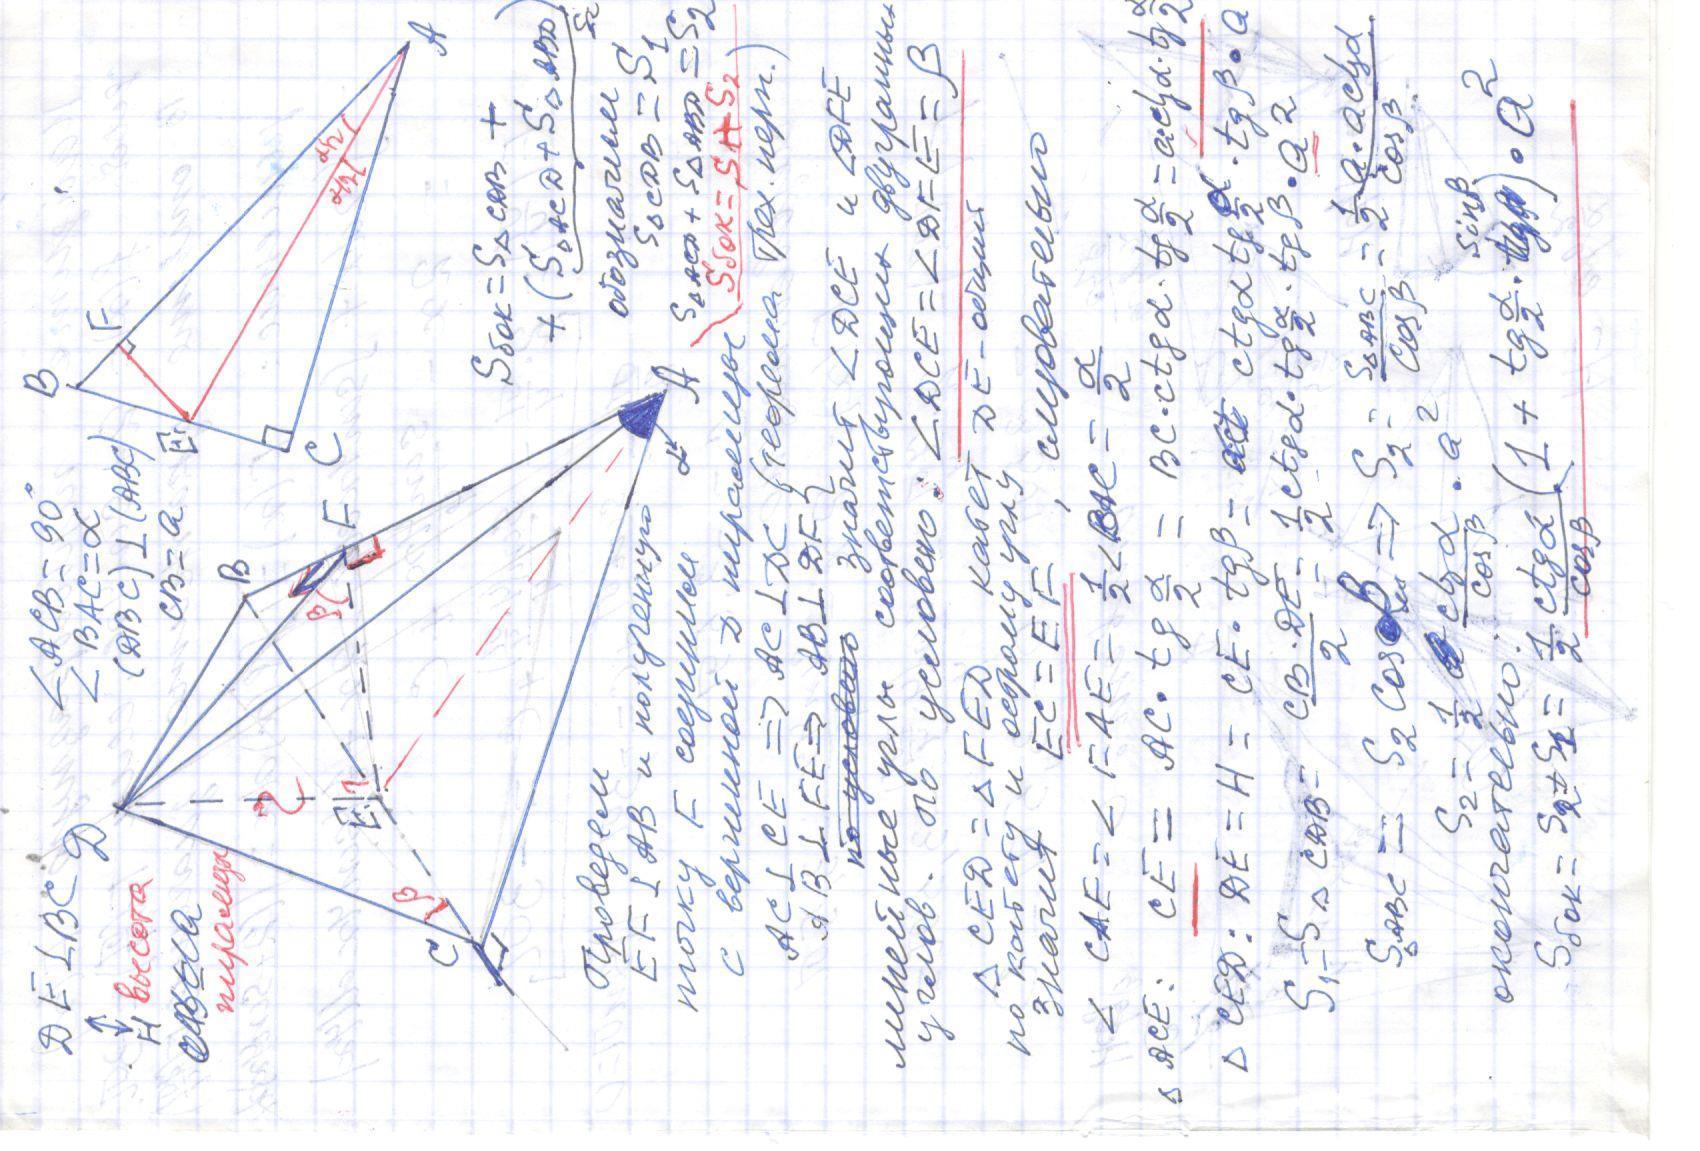 DE ⊥ BC
H высота пирамиды
∠ACB = 90°
∠BAC = α
(DBC) ⊥ (ABC)
CB = a
D
B
F
E
C
A
β
β
α
B
F
E
C
A
α/2
α/2
Sбок = S△CDB +
+ (S△ACD + S△ABD)
S2
обозначим
S△CDB = S1
S△ACD + S△ABD = S2
Sбок = S1 + S2
Проведем
EF ⊥ AB и полученную
точку F соединим
с вершиной D пирамиды
AC ⊥ CE ⇒ AC ⊥ DC } (теорема трех. перп.)
AB ⊥ FE ⇒ AB ⊥ DF
по условию значит ∠DCE и ∠DFE
линейные углы соответствующих двугранных
углов. по условию: ∠DCE = ∠DFE = β
△ CED = △ FED катет DE - общий
по катету и острому углу
значит EC = EF, следовательно
∠ CAE = ∠ FAE = 1/2 ∠BAC = α/2
△ ACE: CE = AC · tg α/2 = BC · ctgα · tg α/2 = a ctgα · tg α/2
△ CED: DE = H = CE · tgβ = ctgα tg α/2 · tgβ · a
S1 = S△CDB = CB · DE / 2 = 1/2 ctgα · tg α/2 · tgβ · a²
S△ABC = S2 cosβ ⇒ S2 = S△ABC / cosβ = 1/2 a · a ctgα / cosβ
S2 = 1/2 ctgα / cosβ · a²
окончательно:
Sбок = S2 + S1 = 1/2 ctgα / cosβ (1 + tg α/2 · sinβ) · a²